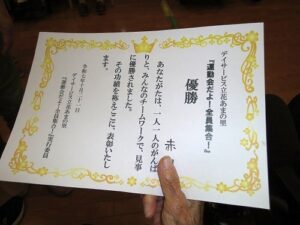 デイサービス立花あまの里
『運動会だよ!全員集合!』
優勝
赤
あなたがたは、一人一人のがんば
りと、みんなのチームワークで、見事
に優勝されました。
その功績を称えここに、表彰いたし
ます。
令和七年十月三十一日
デイサービス立花あまの里
『運動会だよ!全員集合!』実行委員